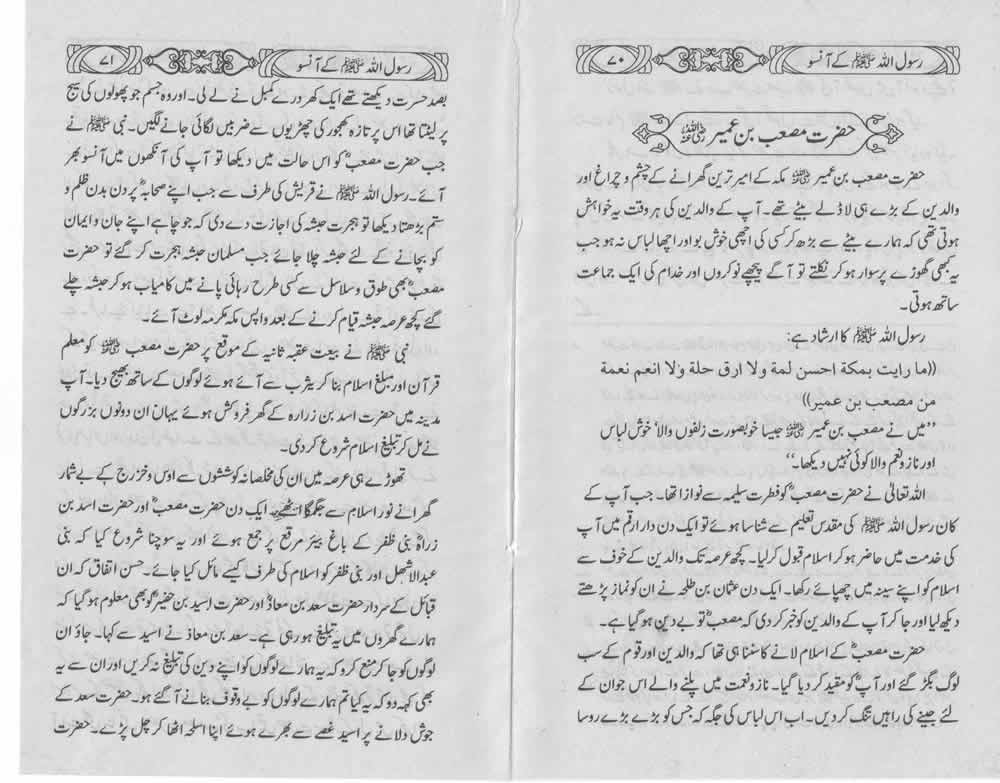 ۷۰
رسول اللہ ﷺ کے آنسو
حضرت مصعب بن عمیر رضی اللہ عنہ
حضرت مصعب بن عمیر رضی اللہ عنہ مکہ کے امیر ترین گھرانے کے چشم و چراغ اور
والدین کے بڑے ہی لاڈلے بیٹے تھے۔ آپ کے والدین کی ہر وقت یہ خواہش
ہوتی تھی کہ ہمارے بیٹے سے بڑھ کر کسی کی اچھی خوش بو اور اچھا لباس نہ ہو جب
یہ کبھی گھوڑے پر سوار ہو کر نکلتے تو آگے پیچھے نوکروں اور خدام کی ایک جماعت
ساتھ ہوتی۔
رسول اللہ ﷺ کا ارشاد ہے:
((ما رایت بمکة احسن لمة ولا ارق حلة ولا انعم نعمة
من مصعب بن عمیر))
’’میں نے مصعب بن عمیر رضی اللہ عنہ جیسا خوبصورت زلفوں والا‘ خوش لباس
اور ناز و نعم والا کوئی نہیں دیکھا۔‘‘
اللہ تعالیٰ نے حضرت مصعبؓ کو فطرت سلیمہ سے نوازا تھا۔ جب آپ کے
کان رسول اللہ ﷺ کی مقدس تعلیم سے شناسا ہوئے تو ایک دن دار ارقم میں آپ
کی خدمت میں حاضر ہو کر اسلام قبول کر لیا۔ کچھ عرصہ تک والدین کے خوف سے
اسلام کو اپنے سینہ میں چھپائے رکھا۔ ایک دن عثمان بن طلحہ نے ان کو نماز پڑھتے
دیکھ لیا اور جا کر آپ کے والدین کو خبر کر دی کہ مصعبؓ تو بے دین ہو گیا ہے۔
حضرت مصعبؓ کے اسلام لانے کا سننا ہی تھا کہ والدین اور قوم کے سب
لوگ بگڑ گئے اور آپؓ کو مقید کر دیا گیا۔ ناز و نعمت میں پلنے والے اس جوان کے
لئے جینے کی راہیں تنگ کر دیں۔ اب اس لباس کی جگہ کہ جس کو بڑے بڑے روسا
۷۱
رسول اللہ ﷺ کے آنسو
بصد حسرت دیکھتے تھے ایک کھردرے کمبل نے لے لی۔ اور وہ جسم جو پھولوں کی سیج
پر لیٹتا تھا اس پر تازہ کھجور کی چھڑیوں سے ضربیں لگائی جانے لگیں۔ نبی ﷺ نے
جب حضرت مصعبؓ کو اس حالت میں دیکھا تو آپ کی آنکھوں میں آنسو بھر
آئے۔ رسول اللہ ﷺ نے قریش کی طرف سے جب اپنے صحابہؓ پر دن بدن ظلم و
ستم بڑھتا دیکھا تو ہجرت حبشہ کی اجازت دے دی کہ جو چاہے اپنے جان و ایمان
کو بچانے کے لئے حبشہ چلا جائے جب مسلمان حبشہ ہجرت کر گئے تو حضرت
مصعبؓ بھی طوق و سلاسل سے کسی طرح رہائی پانے میں کامیاب ہو کر حبشہ چلے
گئے کچھ عرصہ حبشہ قیام کرنے کے بعد واپس مکہ مکرمہ لوٹ آئے۔
نبی ﷺ نے بیعت عقبہ ثانیہ کے موقع پر حضرت مصعب رضی اللہ عنہ کو معلم
قرآن اور مبلغ اسلام بنا کر یثرب سے آئے ہوئے لوگوں کے ساتھ بھیج دیا۔ آپ
مدینہ میں حضرت اسد بن زرارہ کے گھر فروکش ہوئے یہاں ان دونوں بزرگوں
نے مل کر تبلیغ اسلام شروع کر دی۔
تھوڑے ہی عرصہ میں ان کی مخلصانہ کوششوں سے اوس و خزرج کے بے شمار
گھرانے نور اسلام سے جگمگا اٹھے۔ ایک دن حضرت مصعبؓ اور حضرت اسد بن
زراہؓ بنی ظفر کے باغ بیئر مرقع پر جمع ہوئے اور یہ سوچنا شروع کیا کہ بنی
عبدالاشھل اور بنی ظفر کو اسلام کی طرف کیسے مائل کیا جائے۔ حسن اتفاق کہ ان
قبائل کے سردار حضرت سعد بن معاذؓ اور حضرت اسید بن حضیرؓ کو بھی معلوم ہو گیا کہ
ہمارے گھروں میں یہ تبلیغ ہو رہی ہے۔ سعد بن معاذ نے اسید سے کہا۔ جاؤ ان
لوگوں کو جا کر منع کرو کہ یہ ہمارے لوگوں کو اپنے دین کی تبلیغ نہ کریں اور ان سے یہ
بھی کہہ دو کہ یہ کیا تم ہمارے لوگوں کو بے وقوف بنانے آ گئے ہو۔ حضرت سعد کے
جوش دلانے پر اسید غصے سے بھرے ہوئے اپنا اسلحہ اٹھا کر چل پڑے۔ حضرت